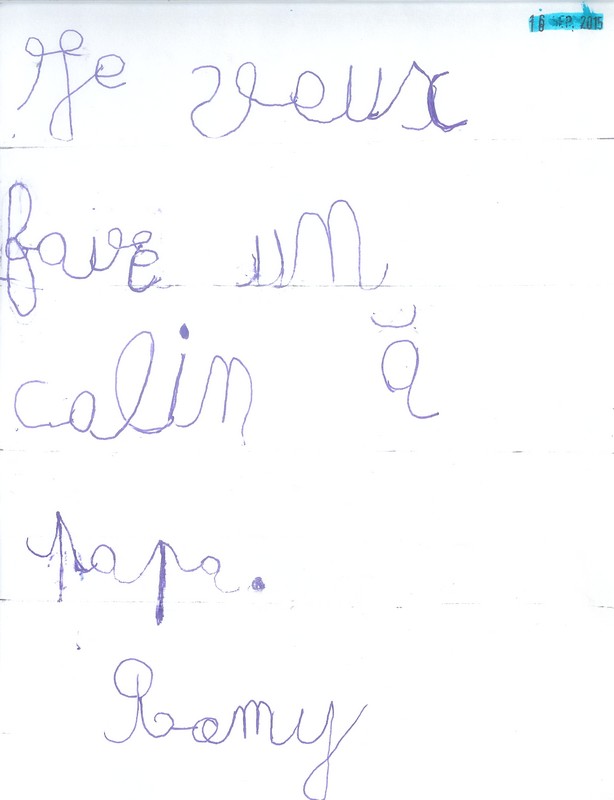 16 SEP. 2015
Je veux
faire un
calin à
papa.
Romy